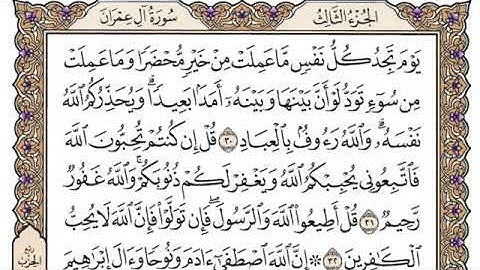 الجزء الثالث
سورة آل عمران
يَوْمَ تَجِدُ كُلُّ نَفْسٍ مَّا عَمِلَتْ مِنْ خَيْرٍ مُّحْضَرًا وَمَا عَمِلَتْ
مِن سُوٓءٍ تَوَدُّ لَوْ أَنَّ بَيْنَهَا وَبَيْنَهُۥٓ أَمَدَۢا بَعِيدًا ۗ وَيُحَذِّرُكُمُ ٱللَّهُ
نَفْسَهُۥ ۗ وَٱللَّهُ رَءُوفُۢ بِٱلْعِبَادِ ٣٠ قُلْ إِن كُنتُمْ تُحِبُّونَ ٱللَّهَ
فَٱتَّبِعُونِى يُحْبِبْكُمُ ٱللَّهُ وَيَغْفِرْ لَكُمْ ذُنُوبَكُمْ ۗ وَٱللَّهُ غَفُورٌ
رَّحِيمٌ ٣١ قُلْ أَطِيعُوا۟ ٱللَّهَ وَٱلرَّسُولَ ۖ فَإِن تَوَلَّوْا۟ فَإِنَّ ٱللَّهَ لَا يُحِبُّ
ٱلْكَٰفِرِينَ ٣٢ ۞ إِنَّ ٱللَّهَ ٱصْطَفَىٰٓ ءَادَمَ وَنُوحًا وَءَالَ إِبْرَٰهِيمَ
ربع
الحزب